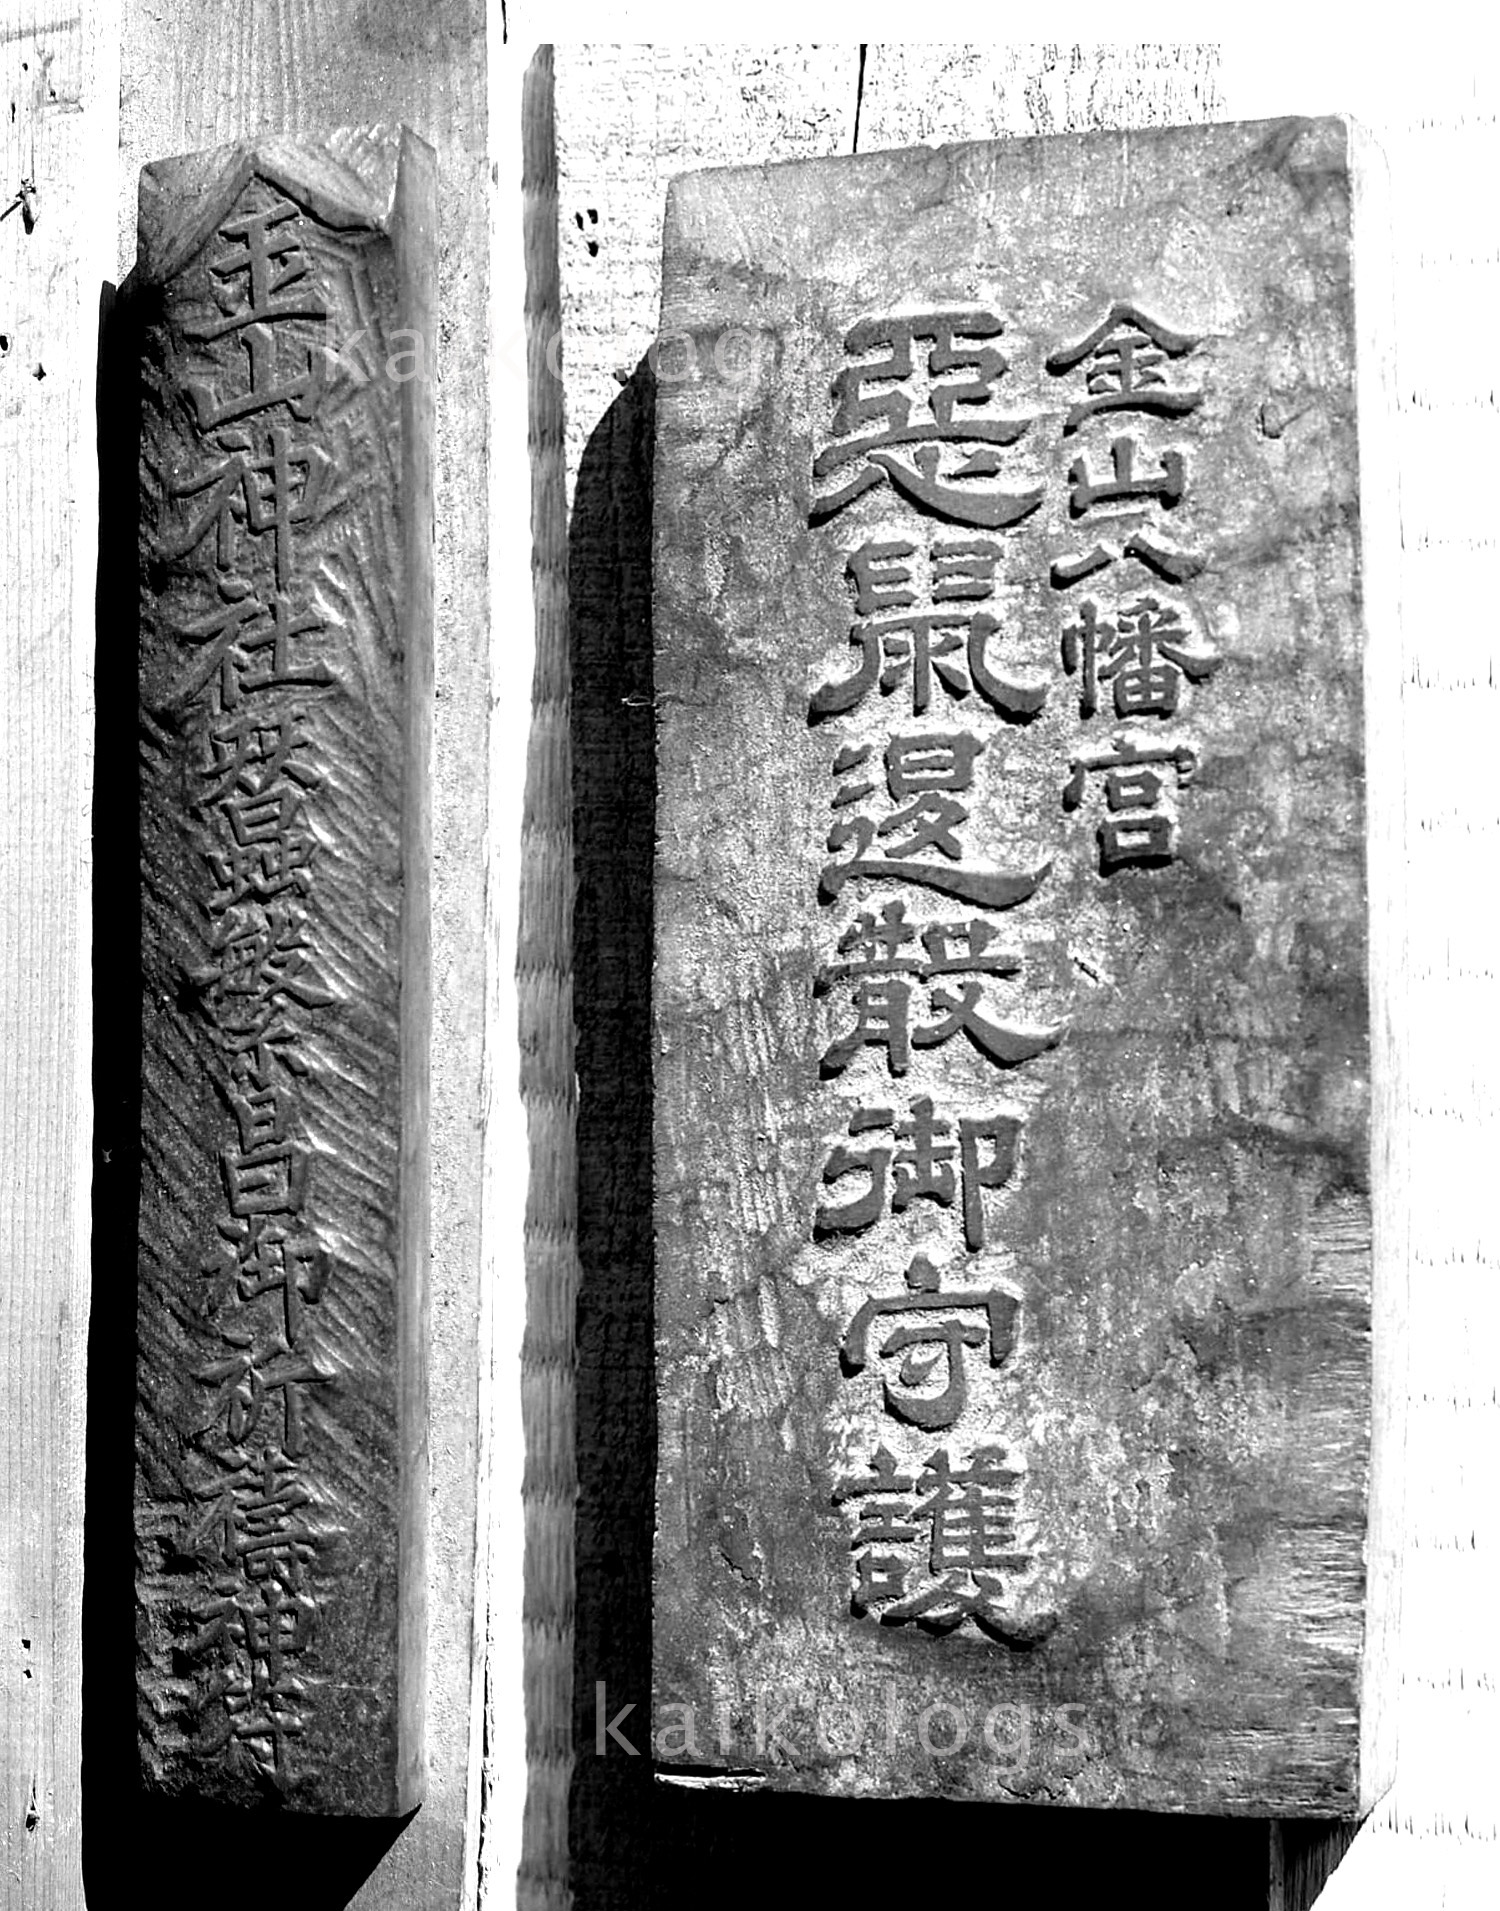 金山八幡宮
惡鼠退散御守護
金山神社蠶繁昌御祈禱神
kaikolog
kaikologs